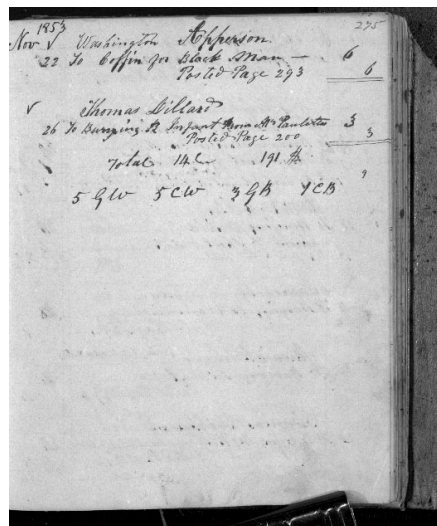 295
1853
Nov √ Washington Apperson
22 To Coffin for Black Man — 6
Posted Page 293 6
√ Thomas Dillard
26 To Burying Infant from 3
Posted Page 200 3
Total 14 191
5 GW 5 CW 3 GB 1 CB